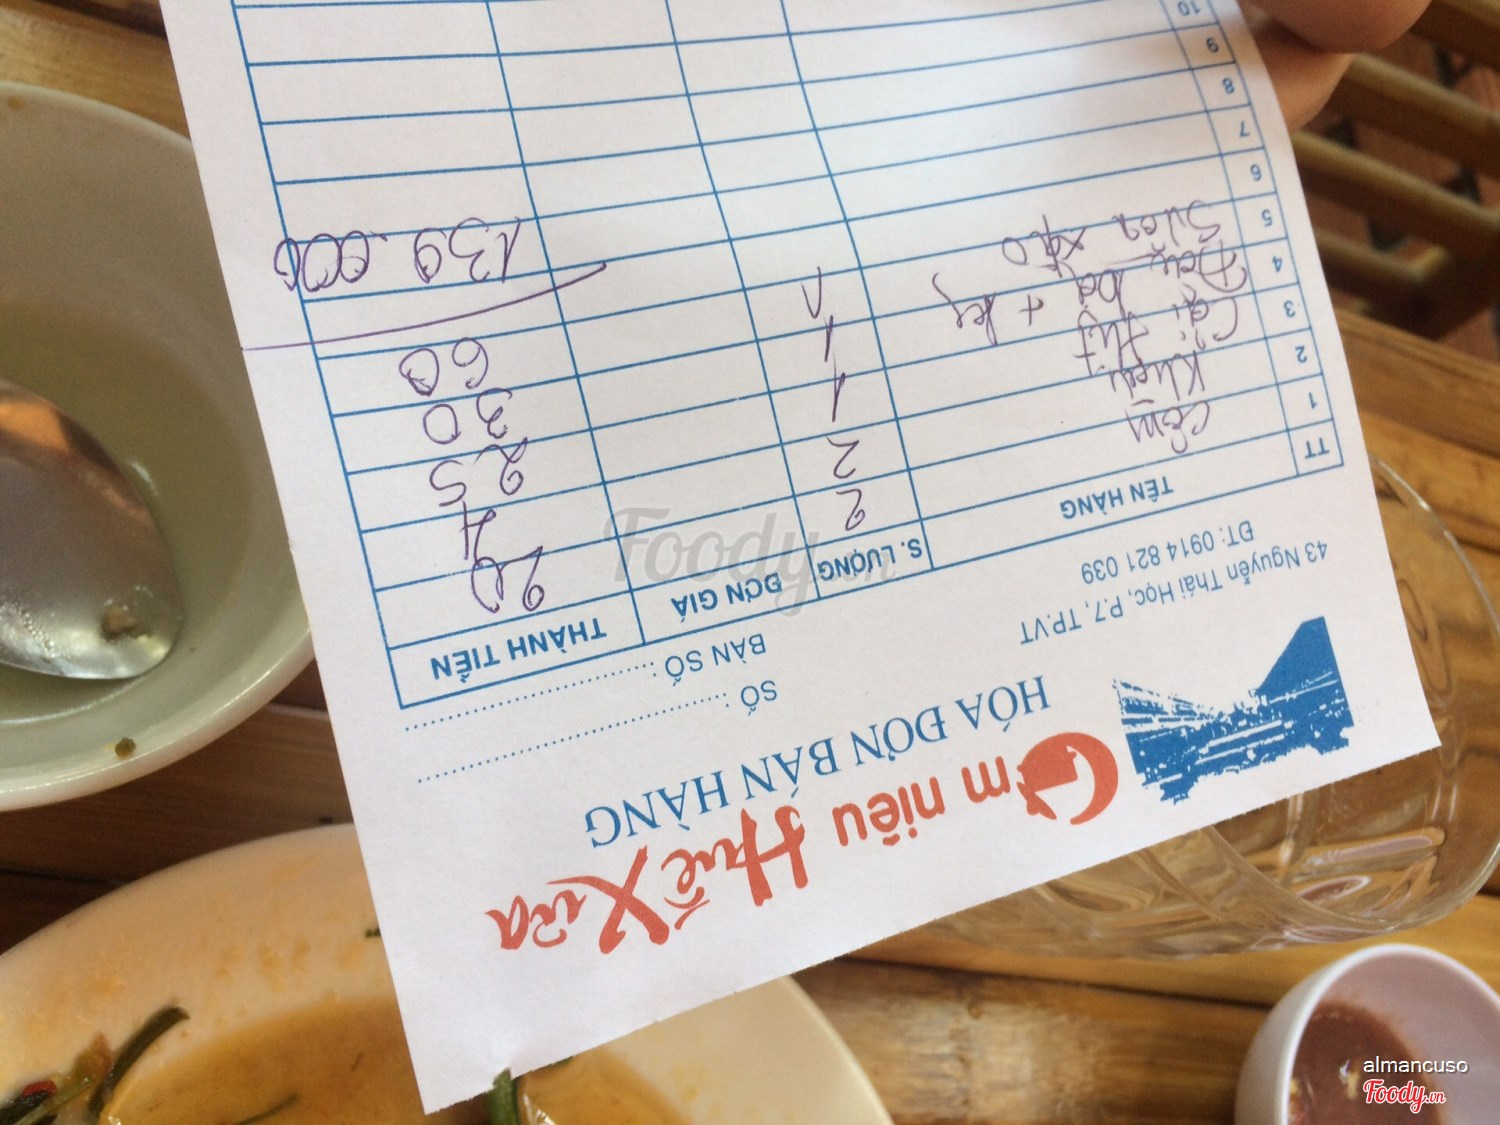 Cơm niêu Huế Xưa
HÓA ĐƠN BÁN HÀNG
43 Nguyễn Thái Học, P.7, TP.VT
ĐT: 0914 821 039
SỐ :
BÀN SỐ :
TT TÊN HÀNG S. LƯỢNG ĐƠN GIÁ THÀNH TIỀN
1 Cơm 2 20
2 Khăn 2 4
3 Cải 1 25
4 Đậu 1 30
5 Sườn xào 1 60
6 139.000
7
8
9
10
Foody.vn
almancuso
Foody.vn